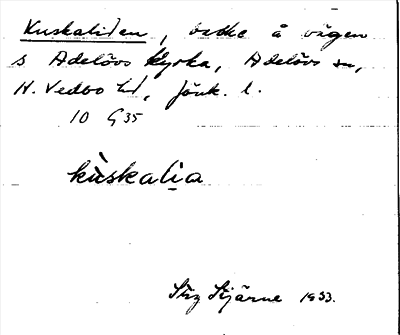 Kuskaliden, backe å vägen
s Adelövs kyrka, Adelövs sn,
N. Vedbo hd, Jönk. l.
10 G 35
kùskalia
Stig Stjärne 1933.